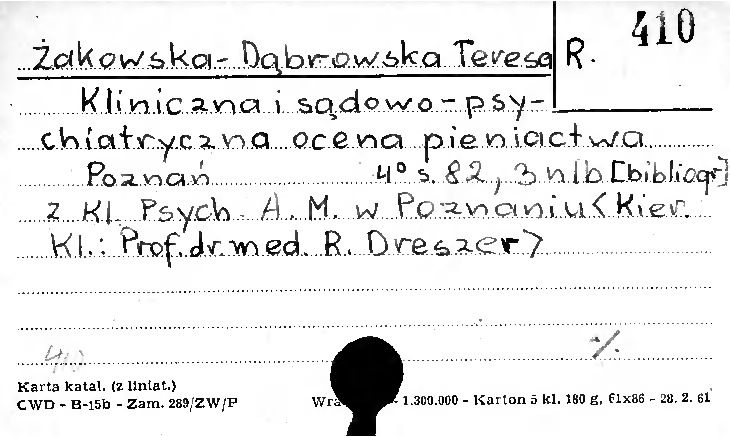 Żakowska-Dąbrowska Teresa R. 410
Kliniczna i sądowo-psy-
chiatryczna ocena pieniactwa
Poznań 4° s. 82, 3 nlb [bibliogr]
z Kl. Psych. A. M. w Poznaniu <Kier.
Kl.: Prof. dr. med. R. Dreszer>
410 %
Karta katal. (z liniat.)
CWD - B-15b - Zam. 289/ZW/P - 1.300.000 - Karton 5 kl. 180 g, 61x86 - 28. 2. 61